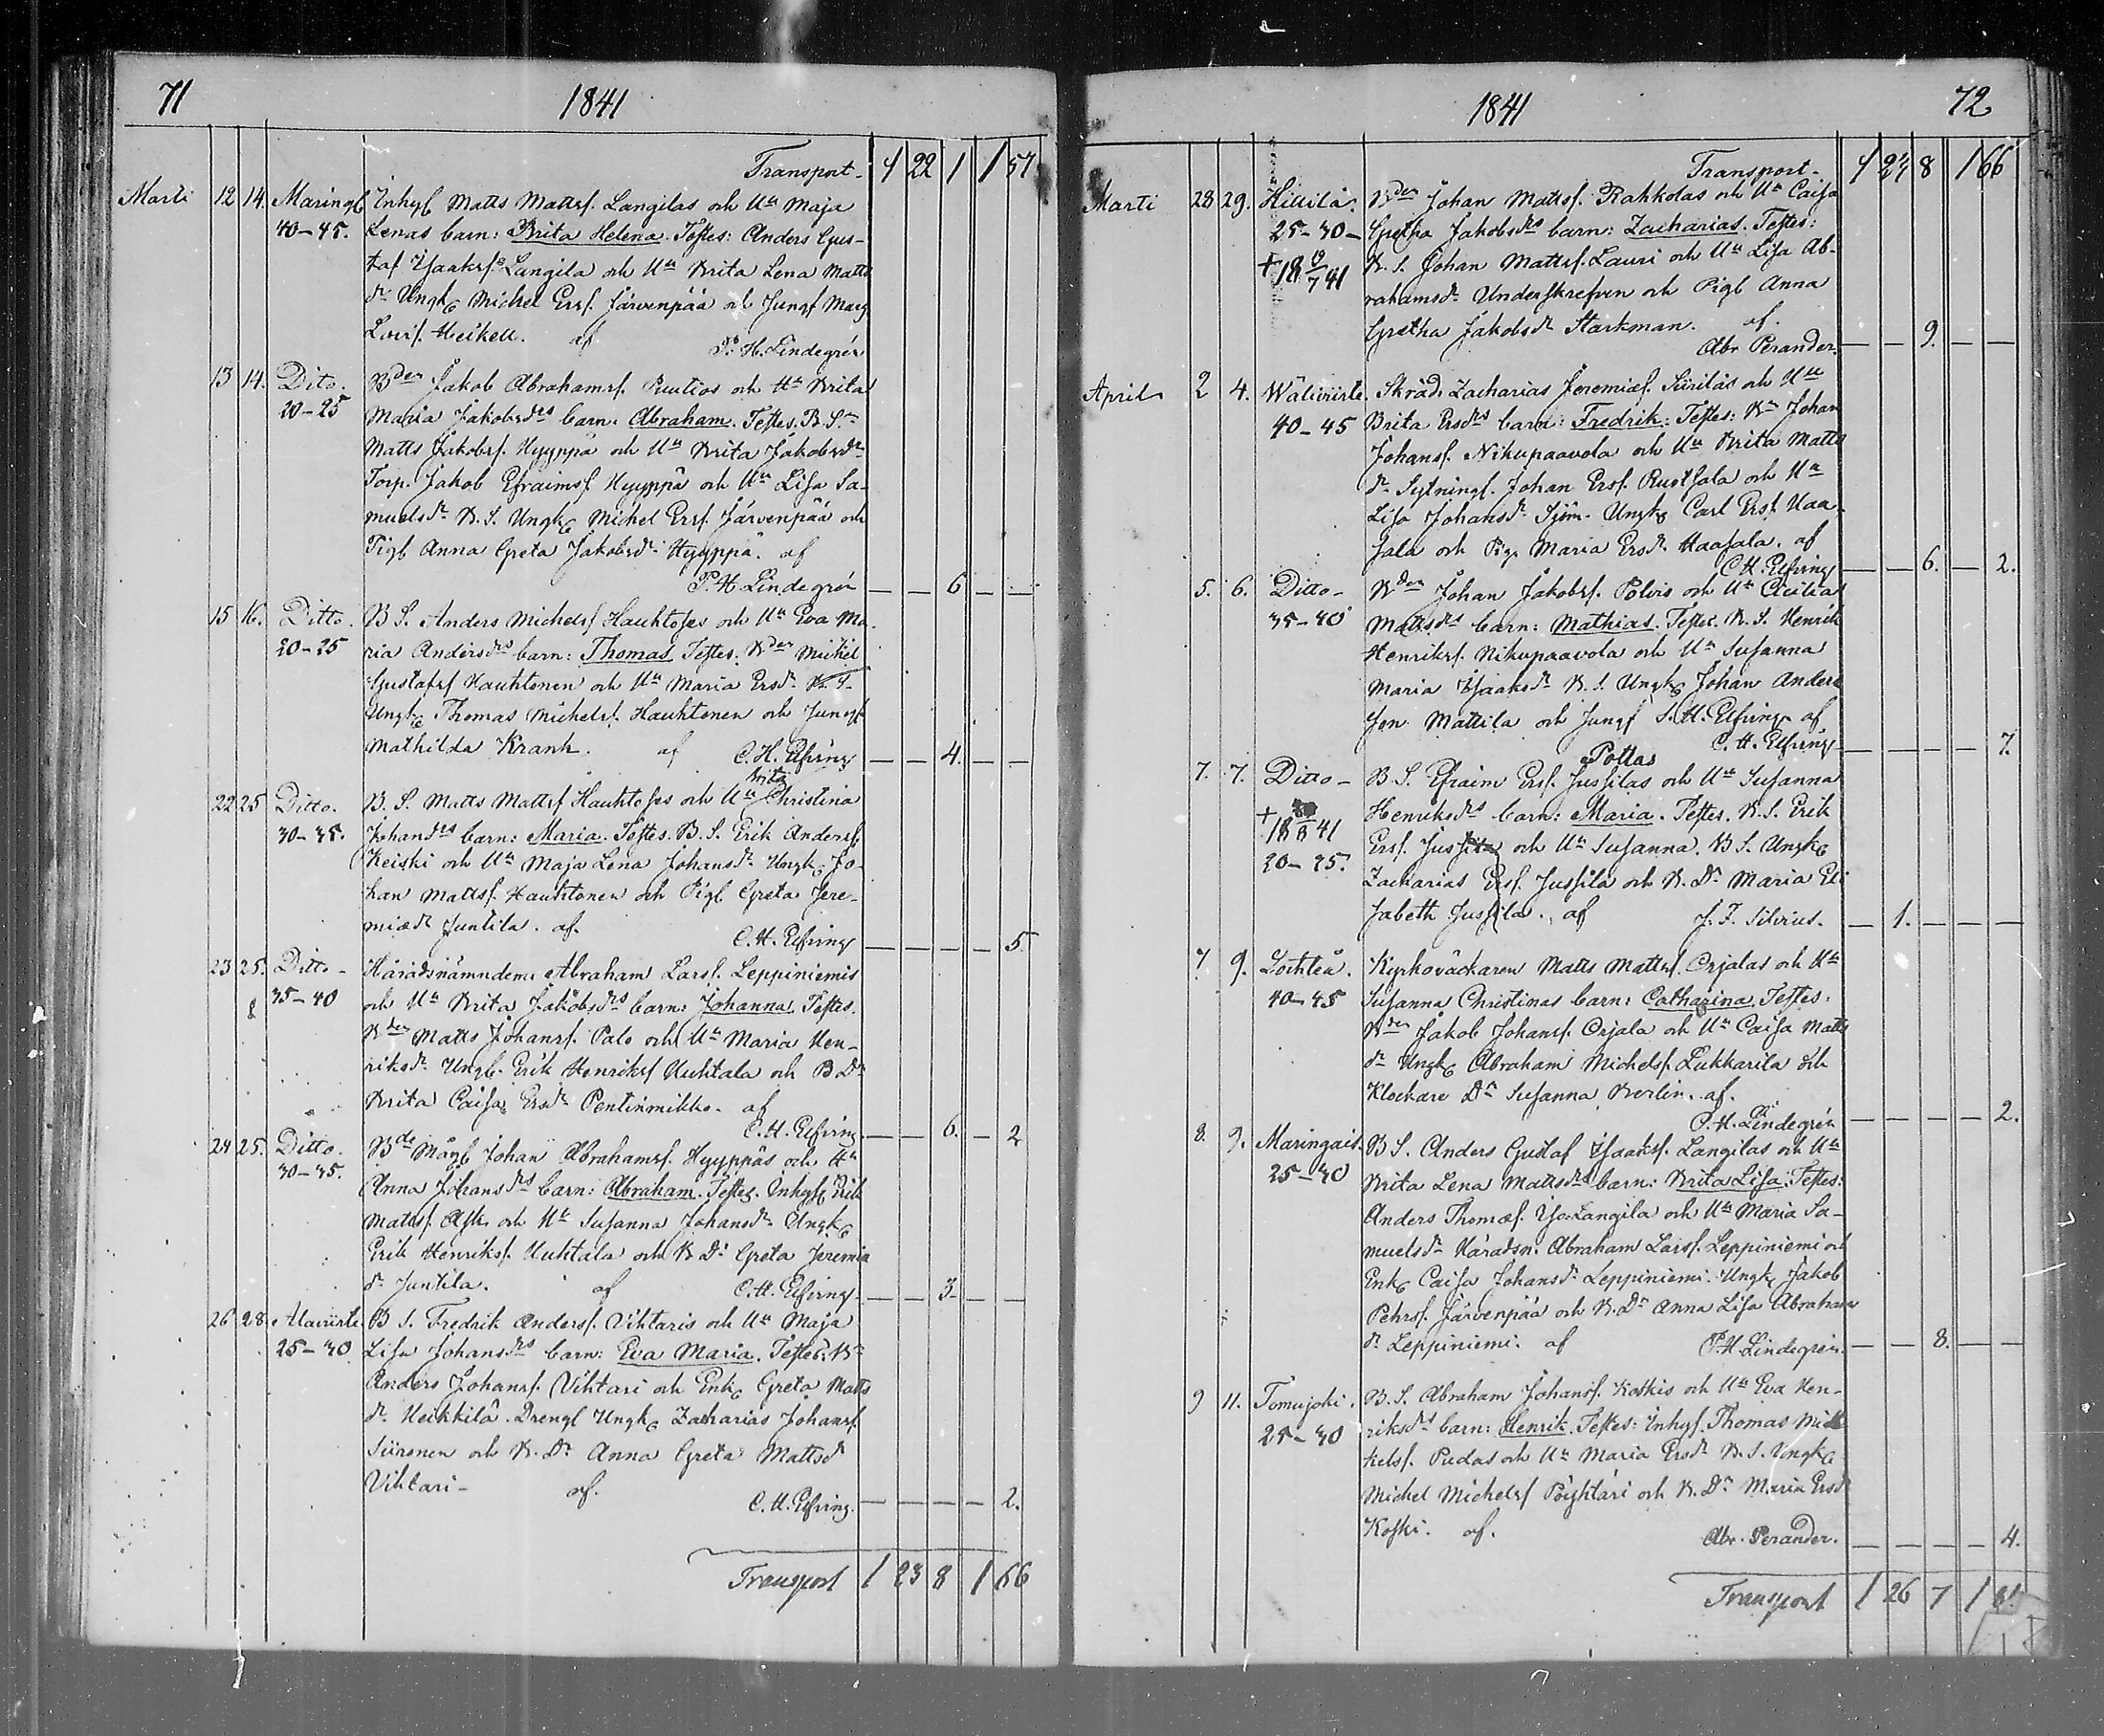 71
1841
Transport - 1 22 1 1 57
Marti 12 14. Maringb Inhys Matts Mattss. Langilas och Hu Maja
40-45. Lenas barn: Brita Helena. Testes: Anders Gus-
taf Isaakss. Langila och Hu Brita Lena Matts
dr Ungk Michel Erss. Järvenpää och Jungf Marg
Lovis. Heikell. af P. H. Lindegrén
13 14. Dito. Bden Jakob Abrahamss. Ruutios och Hu Brita
20-25 Maria Jakobsdrs barn: Abraham. Testes. B. Sn
Matts Jakobss. Hyyppä och Hu Brita Jakobsdr
Torp. Jakob Efraimss Hyyppä och Hu Lisa Sa-
muelsdr B. S. Ungk Michel Erss. Järvenpää och
Pigb Anna Greta Jakobsdr Hyyppä. af
P. H. Lindegrén — — 6 — —
15 16. Ditto. B S. Anders Michelss Hauhtoses och Hu Eva Ma-
20-25 ria Andersdrs barn: Thomas. Testes. Bden Mickel
Gustafss Hauhtonen och Hu Maria Ersdr B. S.
Ungk Thomas Michelss. Hauhtonen och Jungf
Mathilda Krank. af C. H. Elfving — — 4. — —
Brita
22 25 Ditto. B. S. Matts Mattss Hauhtoses och Hu Christina
30-35. Johansdrs barn: Maria. Testes. B. S. Erik Anderss.
Keiski och Hu Maja Lena Johansdr Ungk Jo-
han Mattss. Hauhtonen och Pigb Greta Jere-
miædr Juntila. af. C. H. Elfving — — — — 5.
23 25. Ditto - Häradsnämndem. Abraham Larss. Leppiniemis
35-40 och Hu Brita Jakobsdrs barn: Johanna. Testes.
Bden Matts Johanss. Palo och Hu Maria Hen-
riksdr Ungk. Erik Henrikss Huhtala och B Dr
Brita Caisa Ersdr Pentinmikko. af
C. H. Elfving — — 6. — 2
24 25. Ditto. Bde Mågb Johan Abrahamss. Hyyppäs och Hu
30-35. Anna Johansdrs barn: Abraham. Testes. Inhys Erik
Mattss. Ask och Hu Susanna Johansdr Ungk
Erik Henrikss. Huhtala och B Dr Greta Jeremiæ
dr Juntila. af C. H. Elfving — — 3. — —
26 28. Alavirte B S. Fredrik Anderss. Vihtaris och Hu Maja
25-30 Lisa Johansdrs barn: Eva Maria. Testes: Bn
Anders Johanss. Vihtari och Enk Greta Matts
dr Heikkilä. Drengl Ungk Zacharias Johanss.
Siironen och B. Dr Anna Greta Mattsdr
Vihtari - af. C. H. Elfving. — — — — 2.
Transport 1 23 8 1 66
72
1841
Transport - 1 23 8 1 66
Marti 28 29. Hillilä. Bden Johan Mattss. Rahkolas och Hu Caisa
25-30 - Gretha Jakobsdrs barn: Zacharias. Testes:
B. S. Johan Mattss. Lauri och Hu Lisa Ab-
rahamsdr Underskrefven och Pigb Anna
Gretha Jakobsdr Starkman. af.
Abr Perander. — — 9. — —
April 2 4. Wälivirte. Skräd. Zacharias Jeremiæs. Siirilas och Hu
40-45 Brita Ersdrs barn: Fredrik: Testes: Bn Johan
Johanss. Nikupaavola och Hu Brita Matts
dr Sytningf. Johan Erss. Ruotsala och Hu
Lisa Johansdr Sjöm. Ungk Carl Erss. Haa-
sala och Pig. Maria Ersdr Haasala. af
C. H. Elfving — — 6. — 2.
5. 6. Ditto - Bden Johan Jakobss. Polvis och Hu Cicilia
35-40 Mattsdrs barn: Mathias. Testes. B. S. Henrik
Henrikss. Nikupaavola och Hu Susanna
Maria Isaaksdr B. S. Ungk Johan Anders
son Mattila och Jungf S. H. Elfving af
C. H. Elfving — — — — 7.
Pottas
7. 7. Ditto - B S. Efraim Erss. Jussilas och Hu Susanna
Henriksdrs barn: Maria. Testes. B. S. Erik
Erss. Jussila och Hu Susanna. B S. Ungk
20-25. Zacharias Erss. Jussila och B. Dr Maria Eli
sabeth Jussila. af J. F. Silvius. — 1. — — —
7. 9. Lochteå. Kyrkoväckaren Matts Mattss. Orjalas och Hu
40-45 Susanna Christinas barn: Catharina. Testes.
Bden Jakob Johanss. Orjala och Hu Caisa Matts
dr Ungk Abraham Michelss. Lukkarila och
Klockare Dr Susanna Berlin. af.
P. H. Lindegrén — — — — 2.
8. 9. Maringais. B S. Anders Gustaf Isaakss. Langilas och Hu
25-30 Brita Lena Mattsdrs barn: Brita Lisa: Testes:
Anders Thomæs. Yso-Langila och Hu Maria Sa-
muelsdr Häradsn. Abraham Larss. Leppiniemi och
Enk Caisa Johansdr Leppiniemi. Ungk Jakob
Pehrss. Järvenpää och B. Dr Anna Lisa Abrahams
dr Leppiniemi. af P. H. Lindegrén. — — 8. — —
9 11. Tomujoki. B. S. Abraham Johanss. Koskis och Hu Eva Hen-
25-30 riksdrs barn: Henrik. Testes: Inhys. Thomas Mick
kelss. Pudas och Hu Maria Ersdr B. S. Ungk
Michel Michelss Pöyhtäri och B. Dr Maria Ersdr
Koski. af. Abr. Perander. — — — — 4.
Transport 1 26 7 1 81.